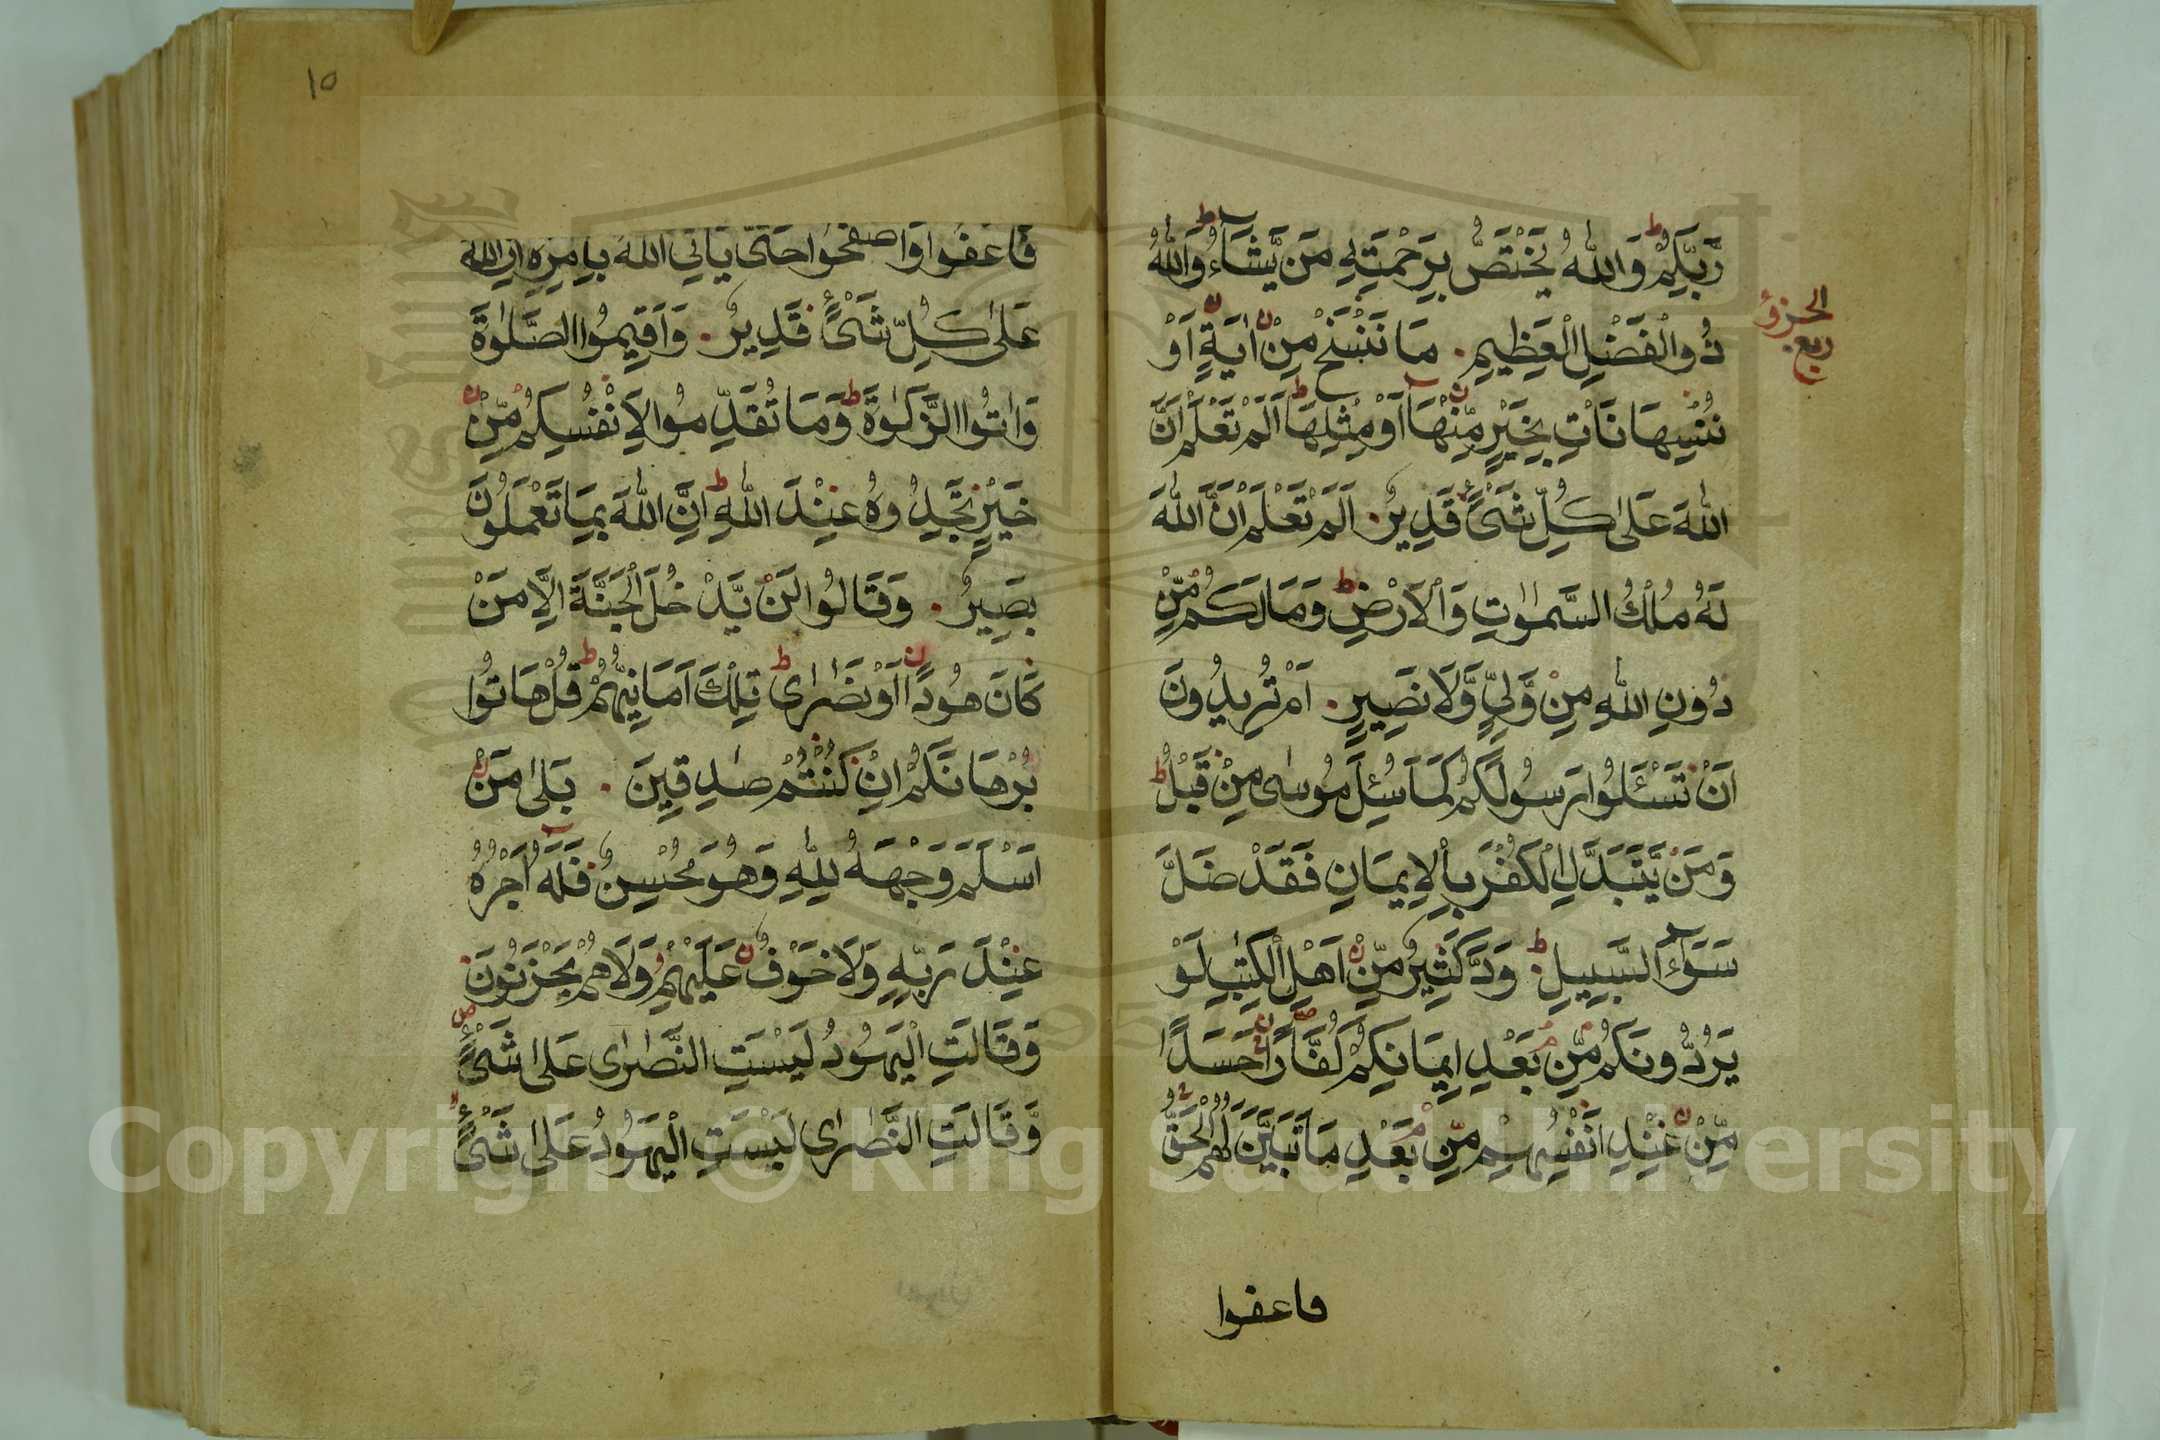 رَبِّكُمْ وَاللّٰهُ يَخْتَصُّ بِرَحْمَتِهٖ مَنْ يَّشَآءُ وَاللّٰهُ
ذُوالْفَضْلِ الْعَظِيمِ مَا نَنْسَخْ مِنْ اٰيَةٍ اَوْ
نُنْسِهَا نَاْتِ بِخَيْرٍ مِّنْهَآ اَوْ مِثْلِهَا اَلَمْ تَعْلَمْ اَنَّ
اللّٰهَ عَلٰى كُلِّ شَيْءٍ قَدِيرٌ اَلَمْ تَعْلَمْ اَنَّ اللّٰهَ
لَهُ مُلْكُ السَّمٰوٰتِ وَالْاَرْضِ وَمَا لَكُمْ مِّنْ
دُونِ اللّٰهِ مِنْ وَّلِيٍّ وَّلَا نَصِيرٍ اَمْ تُرِيدُونَ
اَنْ تَسْـَٔلُوا رَسُولَكُمْ كَمَا سُئِلَ مُوسٰى مِنْ قَبْلُ
وَمَنْ يَّتَبَدَّلِ الْكُفْرَ بِالْاِيمَانِ فَقَدْ ضَلَّ
سَوَآءَ السَّبِيلِ وَدَّ كَثِيرٌ مِّنْ اَهْلِ الْكِتٰبِ لَوْ
يَرُدُّونَكُمْ مِّنْ بَعْدِ اِيمَانِكُمْ كُفَّارًا حَسَدًا
مِّنْ عِنْدِ اَنْفُسِهِمْ مِّنْ بَعْدِ مَا تَبَيَّنَ لَهُمُ الْحَقُّ
فاعفوا
ربع
الجزؤ
١٥
فَاعْفُوا وَاصْفَحُوا حَتّٰى يَاْتِيَ اللّٰهُ بِاَمْرِهٖ اِنَّ اللّٰهَ
عَلٰى كُلِّ شَيْءٍ قَدِيرٌ وَاَقِيمُوا الصَّلٰوةَ
وَاٰتُوا الزَّكٰوةَ وَمَا تُقَدِّمُوا لِاَنْفُسِكُمْ مِّنْ
خَيْرٍ تَجِدُوهُ عِنْدَ اللّٰهِ اِنَّ اللّٰهَ بِمَا تَعْمَلُونَ
بَصِيرٌ وَقَالُوا لَنْ يَّدْخُلَ الْجَنَّةَ اِلَّا مَنْ
كَانَ هُودًا اَوْ نَصٰرٰى تِلْكَ اَمَانِيُّهُمْ قُلْ هَاتُوا
بُرْهَانَكُمْ اِنْ كُنْتُمْ صٰدِقِينَ بَلٰى مَنْ
اَسْلَمَ وَجْهَهُ لِلّٰهِ وَهُوَ مُحْسِنٌ فَلَهُ اَجْرُهُ
عِنْدَ رَبِّهٖ وَلَا خَوْفٌ عَلَيْهِمْ وَلَا هُمْ يَحْزَنُونَ
وَقَالَتِ الْيَهُودُ لَيْسَتِ النَّصٰرٰى عَلٰى شَيْءٍ
وَّقَالَتِ النَّصٰرٰى لَيْسَتِ الْيَهُودُ عَلٰى شَيْءٍ
Copyright © King Saud University